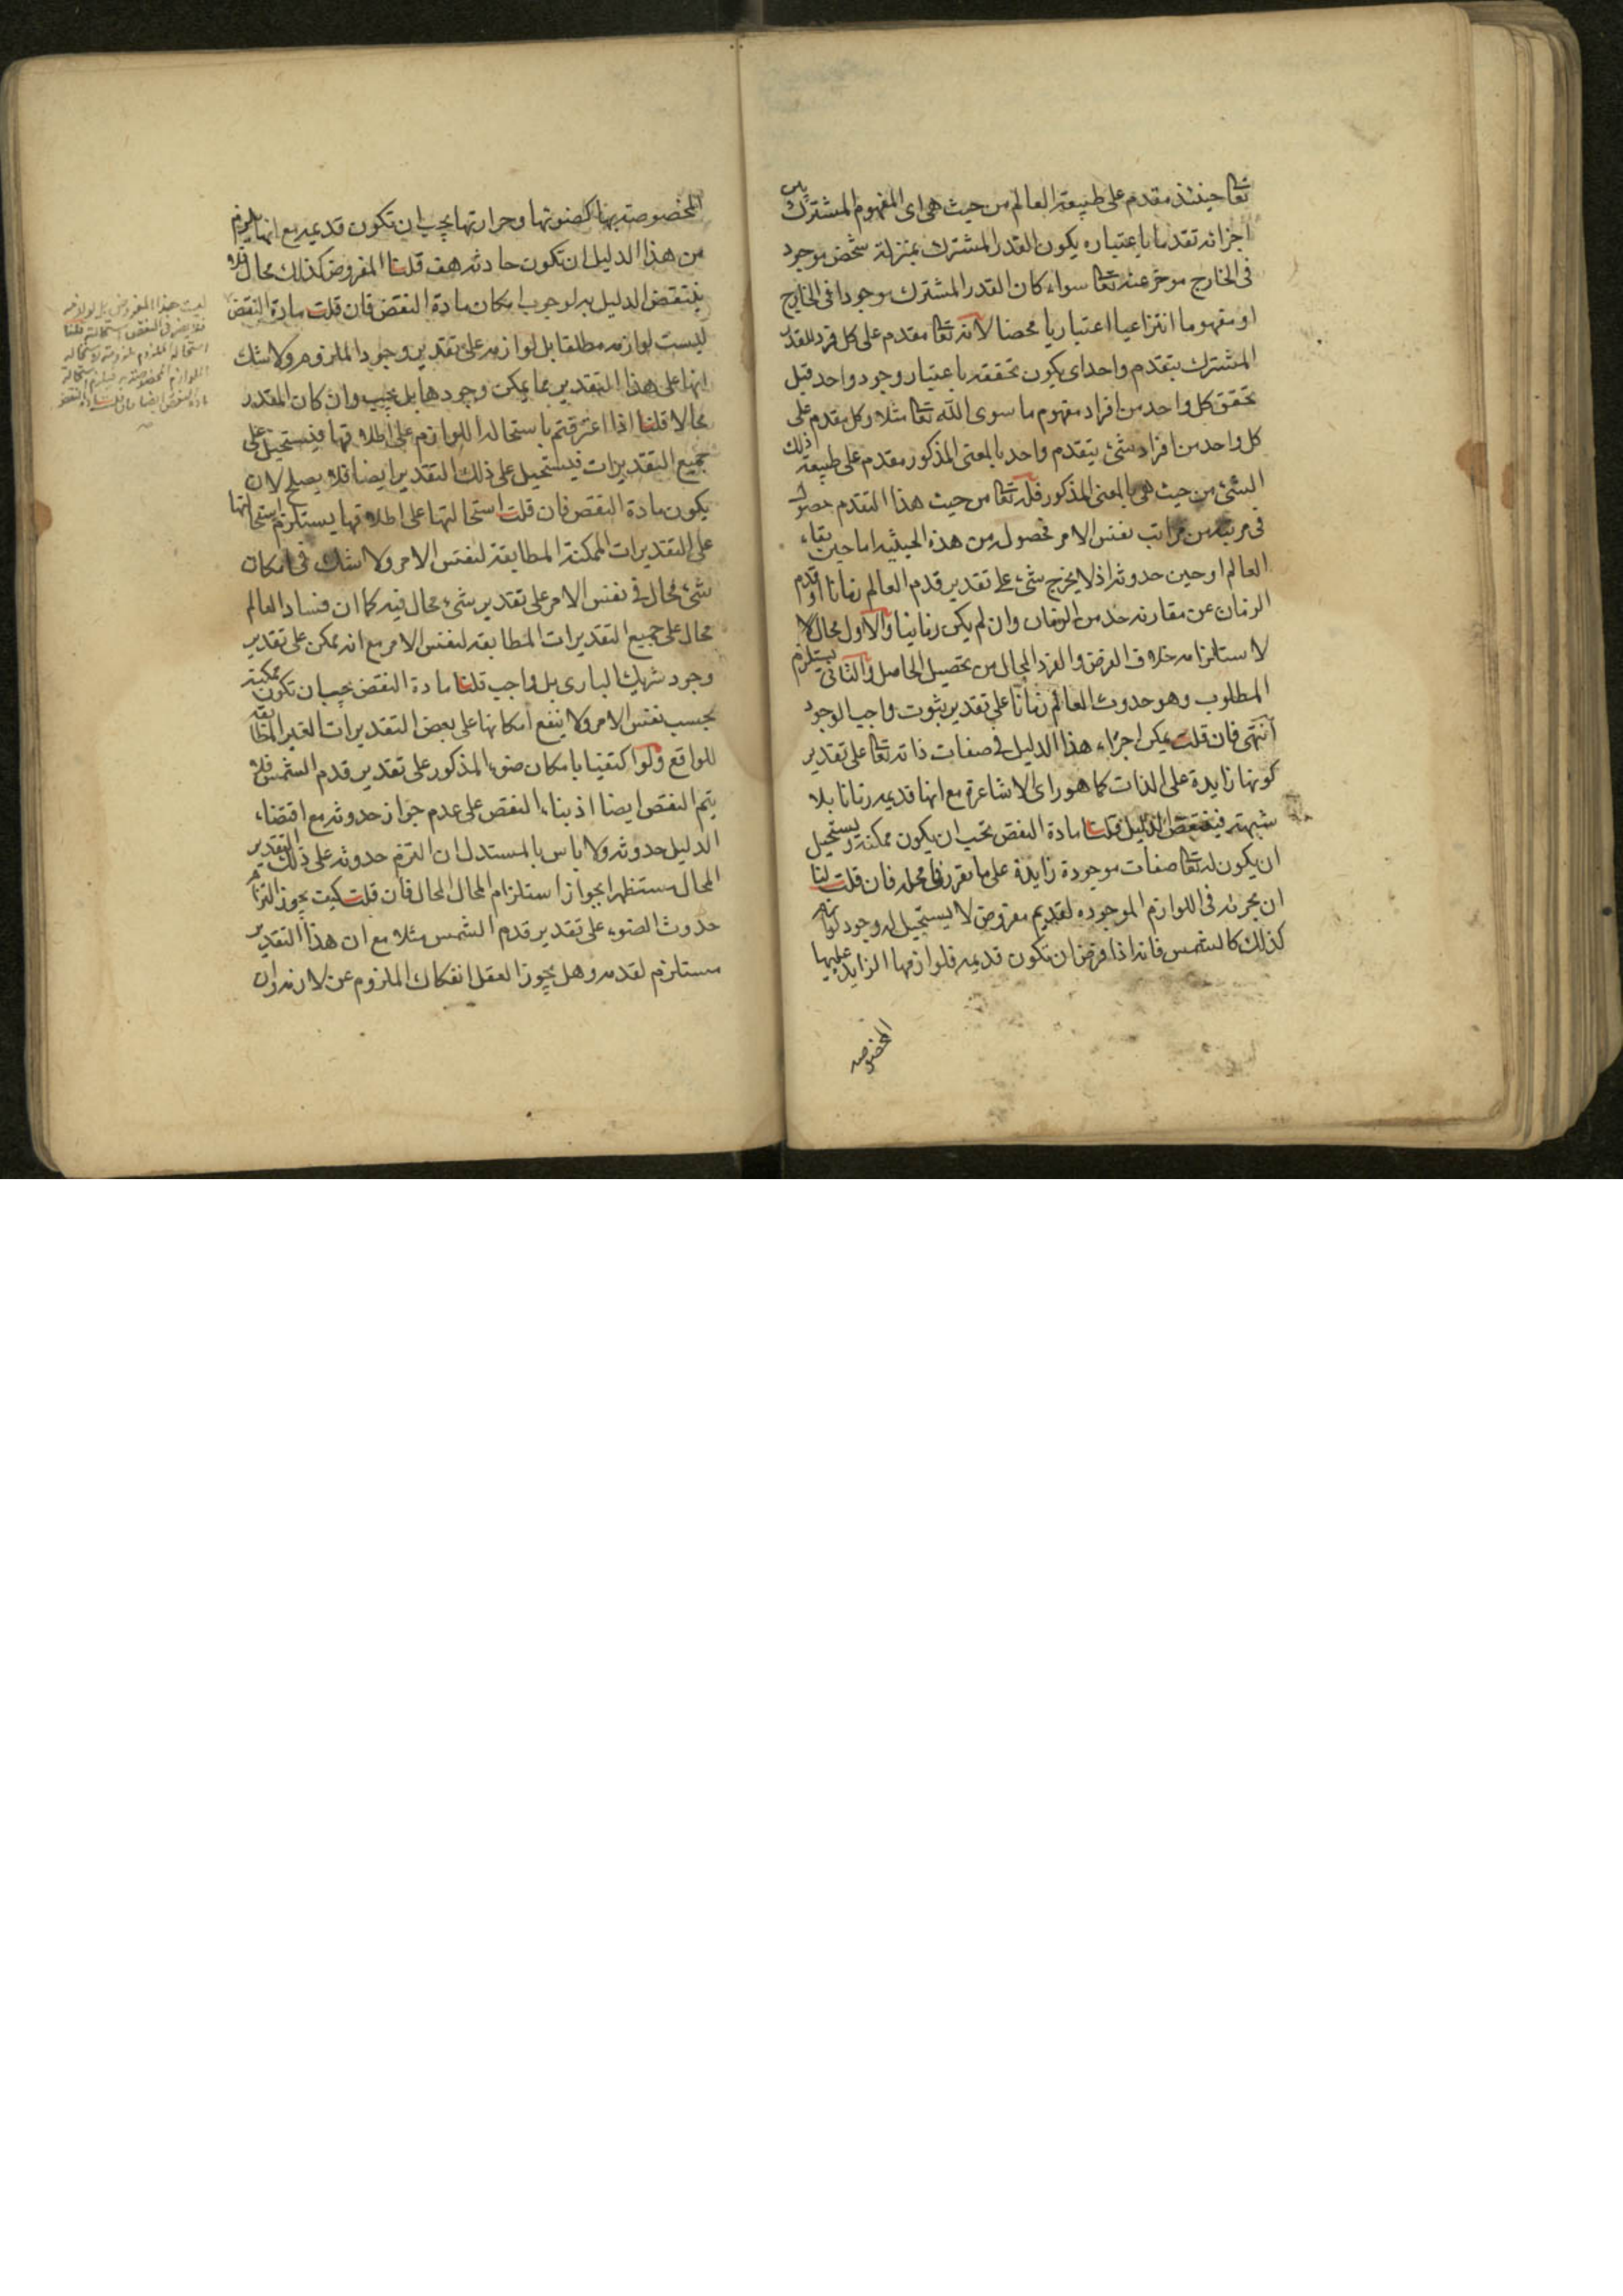 تعا حينئذ مقدم على طبيعة العالم من حيث هى اى المفهوم المشترك بين
اجزائه تقدما باعتباره يكون القدر المشترك بمنزلة شخص موجود
فى الخارج موخر عنه تعا سواء كان القدر المشترك موجودا فى الخارج
او مفهوما انتزاعيا اعتباريا محضا لانه تعا مقدم على كل فرد للقدر
المشترك بتقدم واحد اى يكون تحققه باعتبار وجود واحد قبل
تحقق كل واحد من افراد مفهوم ما سوى الله تعا مثلا وكل مقدم على
كل واحد من افراد شئ بتقدم واحد بالمعنى المذكور مقدم على طبيعة ذلك
الشئ من حيث هى بالمعنى المذكور فله تعا من حيث هذا التقدم حصول
فى مرتبة من مراتب نفس الامر فحصوله من هذه الحيثيه اما حين بقاء
العالم او حين حدوثه اذ لا يخرج شئ على تقدير قدم العالم زمانا او قدم
الزمان عن مقارنه حد من الزمان وان لم يكن زمانيا والاول محال لا
لاستلزامه خلاف الفرض والفرد المحال من تحصيل الحاصل والثانى يستلزم
المطلوب وهو حدوث العالم زمانا على تقدير ثبوت واجب الوجود
انتهى فان قلت يمكن اجراء هذا الدليل فى صفات ذاته تعا على تقدير
كونها زايدة على الذات كما هو راى الاشاعرة مع انها قديمه زمانا بلا
شبهة فينتقض الدليل قلنا مادة النقض تجب ان يكون ممكنة ويستحيل
ان يكون له تعا صفات موجودة زايدة على ما تقرر فى محله فان قلت لنا
ان نجريه فى اللوازم الموجوده لقديم مفروض لا يستحيل له وجود لوازم
كذلك كالشمس فانه اذا فرض ان تكون قديمه فلوازمها الزايد عليها
المخصوصه
المخصوصة بها كضوئها وحرارتها يجب ان تكون قديمه مع انها يلزم
من هذا الدليل ان تكون حادثه هف قلنا المفروض كذلك محال فلا
ينتقض الدليل به لوجوب امكان مادة النقض فان قلت مادة النقض
ليست لوازمه مطلقا بل لوازمه على تقدير وجود الملزوم ولا شك
انها على هذا التقدير مما يمكن وجودها بل يجب وان كان المقدر
محالا قلنا اذا اعترفتم باستحالة اللوازم على اطلاقها فيستحيل على
جميع التقديرات فيستحيل على ذلك التقدير ايضا فلا يصلح لان
يكون مادة النقض فان قلت استحالتها على اطلاقها يستلزم استحالتها
على التقديرات الممكنة المطابقة لنفس الامر ولا شك فى امكان
شئ محال فى نفس الامر على تقدير شئ محال فيه كما ان فساد العالم
محال على جميع التقديرات المطابقه لنفس الامر مع انه ممكن على تقدير
وجود شريك البارى بل واجب قلنا مادة النقض يجب ان تكون ممكنة
بحسب نفس الامر ولا ينفع امكانها على بعض التقديرات الغير المطابقه
للواقع ولو اكتفينا بامكان ضوء المذكور على تقدير قدم الشمس فلا
يتم النقض ايضا اذ بناء النقض على عدم جواز حدوثه مع اقتضاء
الدليل حدوثه ولا باس بالمستدل ان التزم حدوثه على ذلك التقدير
المحال مستظهرا بجواز استلزام المحال المحال فان قلت كيف يجوز التزام
حدوث الضوء على تقدير قدم الشمس مثلا مع ان هذا التقدير
مستلزم لقدمه وهل يجوز العقل انفكاك الملزوم عن لازمه وان
ليست هذا المفروض بل لوازمه
استحالة الملزوم